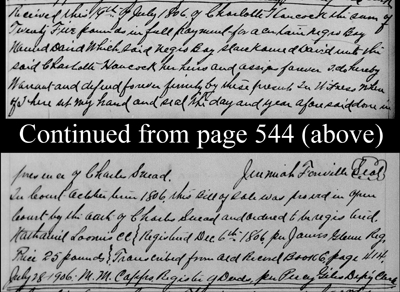 Received this 15th of July 1806, of Charlotte Hancock the sum of
Twenty Five pounds in full payment for a certain negro boy
Named David Which said negro boy slave named David unto the
said Charlotte Hancock her heirs and assigns forever I do hereby
Warrant and defend forever firmly by these presents In Witness When
of I here set my hand and seal the day and year aforesaid done in
Continued from page 544 (above)
presence of Charles Snead. Jeremiah Fonville (Seal)
In Court October term 1806, this bill of sale was proved in open
Court by the oath of Charles Snead and ordered to be registered.
Nathaniel Loomis CC } Registered Dec 6th 1806 per James Glenn Reg.
Price 25 pounds } Transcribed from old Record Book 6, page 414.
July 28-1906. M. M. Capps Register of Deeds, per Percy Giles Depty Clerk